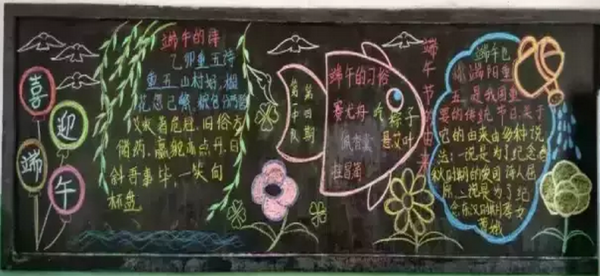 喜
迎
端
午
端午的诗
乙卯重五诗
重五山村好,榴
花忽已繁,粽包分两髻
艾束着危冠,旧俗方
储药,羸躯亦点丹,日
斜吾事毕,一笑向
杯盘
第四期
端午的习俗
赛龙舟 吃粽子
佩香囊 悬艾叶
端午节的由来
端午也
端阳重
五,是我国重
要的传统节日,关于
它的由来由多种说
法:一说是为了纪念春
秋时期的爱国诗人屈
原,一说是为了纪
念东汉时期孝女
曹娥